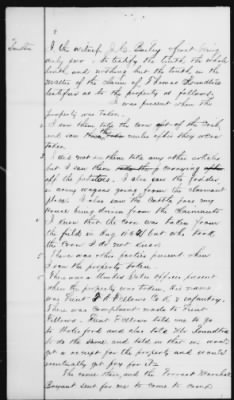 Question
I the witness, Bailey after being
only per: to testify the truth, the whole
truth, and nothing but the truth, in the
matter of the claim of Thomas
testifies as to the property as follows.
I was present when the
property was taken.
I saw them take the corn out of the Crib,
and saw the mules after they were
taken.
3 I did not see them take any other articles
but I saw them carrying
off the potatoes. I also saw the fodder
in army wagons going from the claimants
place. I also saw the Cattle pass my
house being driven from the Claimants
4 I know that the corn was taken from
the field in Aug 1864 but who took
the corn I do not know.
5 There was other parties present when
I saw the property taken.
There was a United States officer present
when the property was taken, his name
was Lieut Fellows Co K infantry.
There was complaint made to Lieut
Fellows. Lieut Fellows told me to go
to and also told Mr
to do the same and told us that we would
get a receipt for the property and would
eventually get pay for it.
The same day, and the Provost Marshal
Bryant sent for me to come to camp